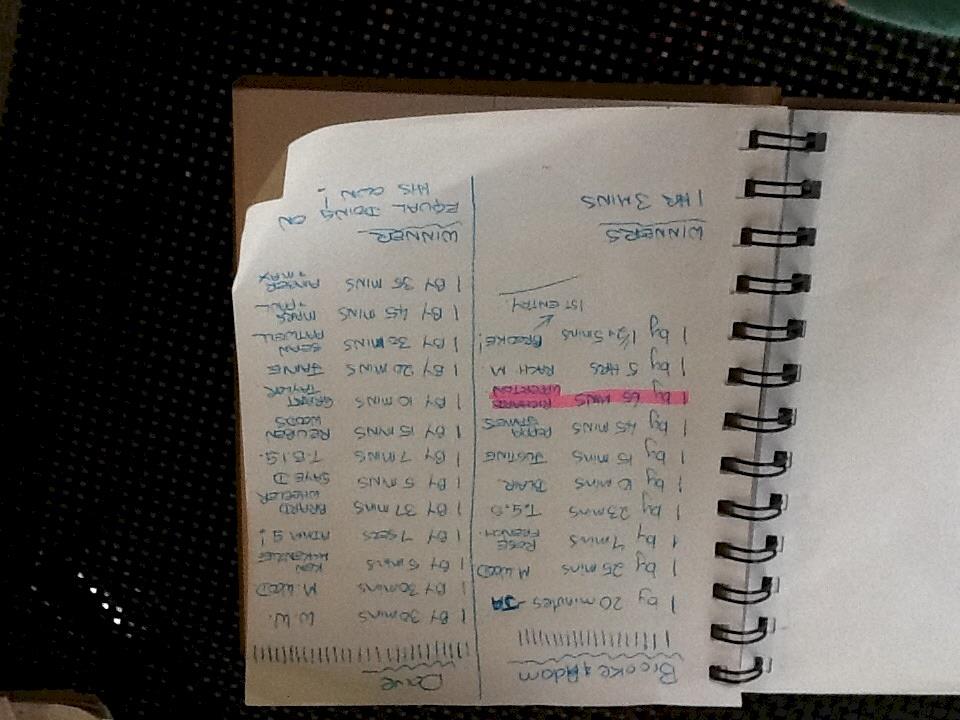 Brooke & Adam
1 by 20 minutes - JA
1 by 25 mins M.WOOD
1 by 7 mins ROSE
FRENCH.
1 by 23 mins T.G.S
1 by 10 mins BLAIR
1 by 15 mins JUSTINE
1 by 45 mins
1 by 65 MINS RICHARD
1 by 5 HRS M
1 by 1/2 + 5 mins BROOKE!
1ST ENTRY.
WINNERS
1 HR 3 MINS
Dave
1 BY 30 mins W.W.
1 BY 30 mins M.WOOD
1 BY 6 mins KEN
McKENZIE
1 BY 7 secs ADAM S!
1 BY 37 MINS
WHEELER
1 BY 5 MINS SAVE D
1 BY 7 MINS T.B.I.S.
1 BY 15 MINS REUBEN
WOODS
1 BY 10 MINS GRANT
TAYLOR
1 BY 20 MINS JAINE
1 BY 30 MINS SEAN
ATTWELL
1 BY 45 MINS MARS
+ PAUL
1 BY 35 MINS
+ MAX
WINNER
EQUAL DOING ON
HIS OWN!